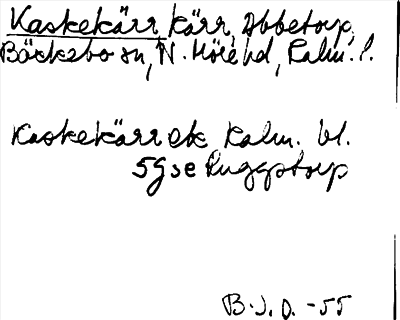 Kaskekärr kärr, Abbetorp,
Bäckebo sn, N. Möre hd, Kalm. l.
Kaskekärr ek Kalm. bl.
5g se Ruggstorp
B.J.O. -55